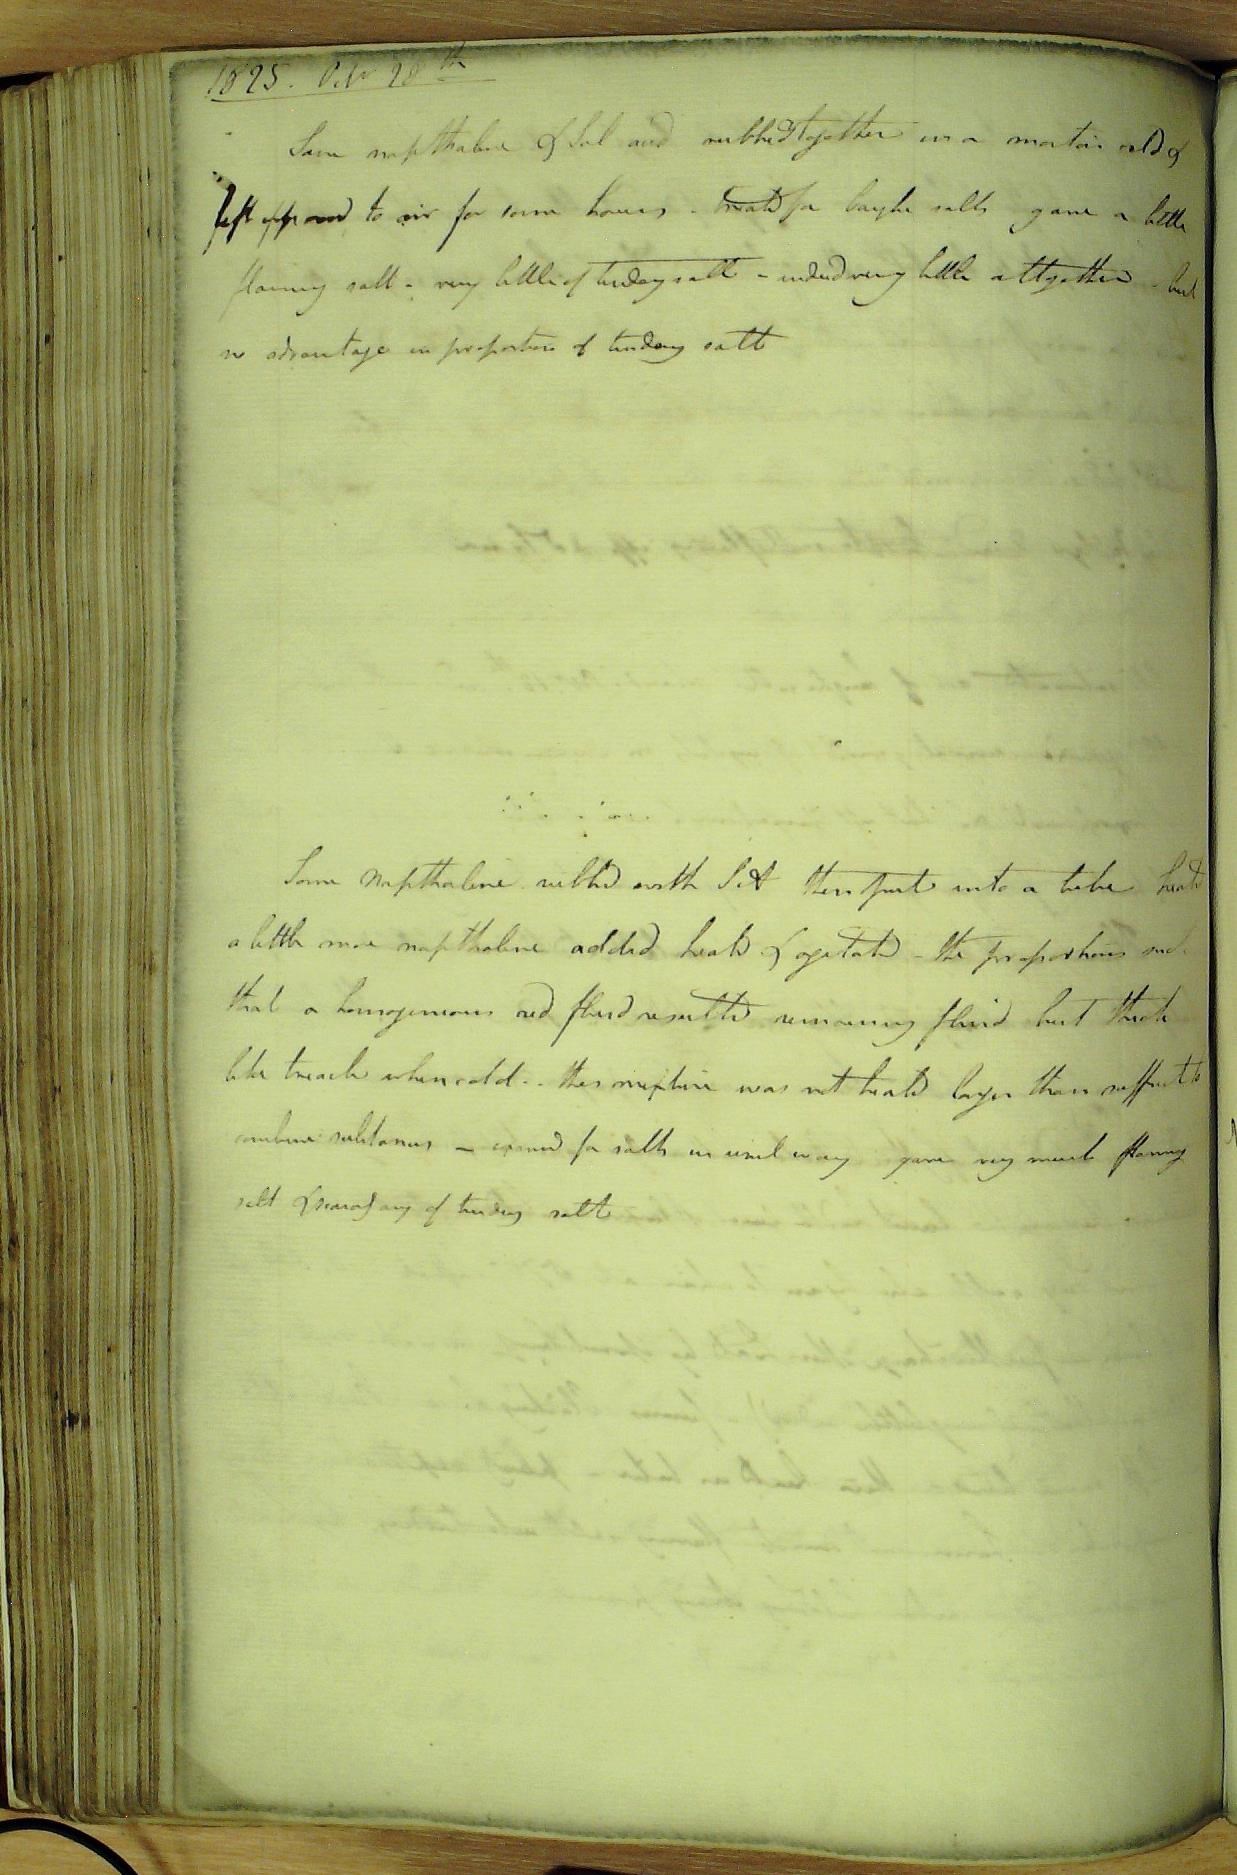 1825. Octr 28th
Some napthaline & Sul acid rubbed together in a mortar cold &
left exposed to air for some hours - treated for baryta salts gave a little
flaming salt - very little of tindery salt - indeed very little altogether - but
no advantage in proportion of tindery salt
Some Napthaline rubbed with SA then put into a tube heated
a little more napthaline added heated & agitated - the proportions such
that a homogeneous red fluid resulted remaining fluid but thick
like treacle when cold - this mixture was not heated longer than sufficient to
combine substances - examd for salts in usual way gave very much flaming
salt & scarcely any of tindery salt